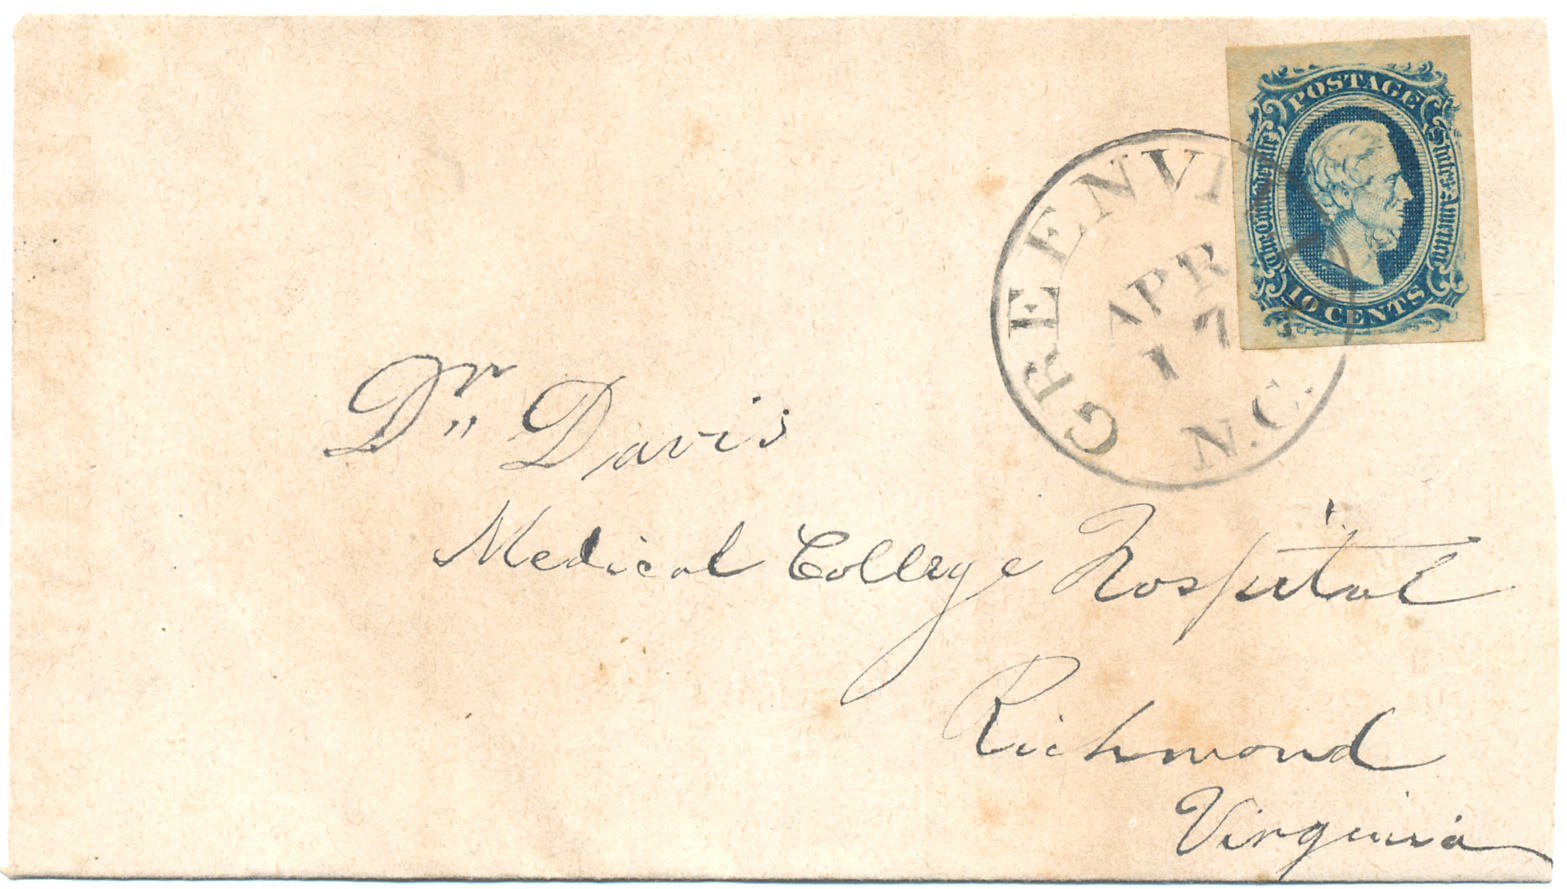 POSTAGE
The Confederate States of America
10 CENTS
GREENVI
APR
17
N.C.
Dr. Davis
Medical College Hospital
Richmond
Virginia